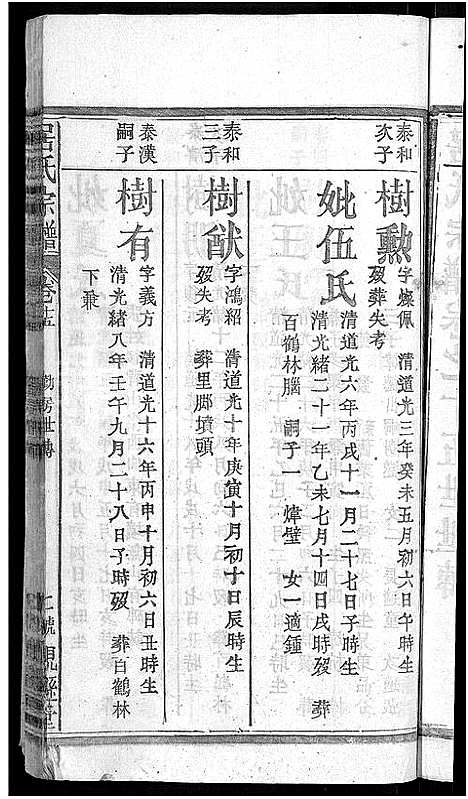 泰和
次子
樹勲
字燦佩 清道光三年癸未五月初六日午時生
歿葬失考
妣伍氏
清道光六年丙戌十一月二十七日子時生
清光緒二十一年乙未七月十四日戌時歿 葬
百鶴林腦 嗣子一 煒壁 女一適鍾
泰和
三子
樹猷
字鴻紹 清道光十年庚寅十月初十日辰時生
歿失考 葬里腳墳頭
泰漢
嗣子
樹有
字義方 清道光十六年丙申十月初六日丑時生
清光緒八年壬午九月二十八日子時歿 葬百鶴林
下兼
居氏宗譜
卷十五
勤房世傳